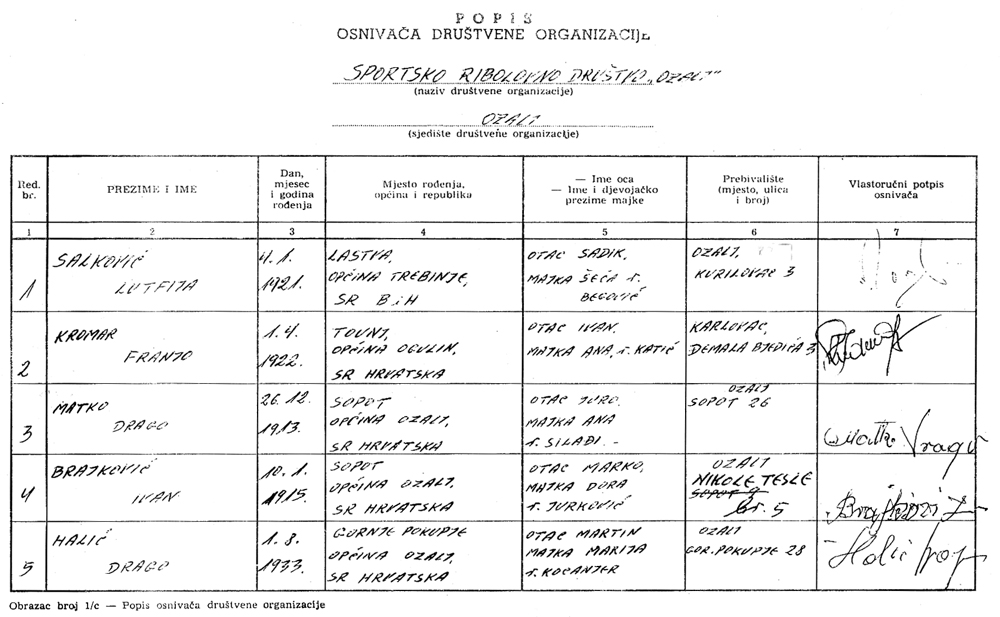 POPIS
OSNIVAČA DRUŠTVENE ORGANIZACIJE
SPORTSKO RIBOLOVNO DRUŠTVO „OZALJ"
(naziv društvene organizacije)
OZALJ
(sjedište društvene organizacije)
Red. br. PREZIME I IME Dan, mjesec i godina rođenja Mjesto rođenja, općina i republika — Ime oca — Ime i djevojačko prezime majke Prebivalište (mjesto, ulica i broj) Vlastoručni potpis osnivača
1 2 3 4 5 6 7
SALKOVIĆ 4.1. LASTVA, OTAC SADIK, OZALJ,
1 LUTFIJA 1921. OPĆINA TREBINJE, MAJKA ŠEĆA r. KURILOVAC 3
SR BiH BEGOVIĆ
KROMAR 1.4. TOUNJ, OTAC IVAN, KARLOVAC,
2 FRANJO 1922. OPĆINA OGULIN, MAJKA ANA, r. KATIĆ DEMALA BJEDIĆA 3
SR HRVATSKA
MATKO 26.12. SOPOT OTAC JURO, OZALJ
3 DRAGO 1913. OPĆINA OZALJ, MAJKA ANA SOPOT 26
SR HRVATSKA r. SILAĐI.-
BRAJKOVIĆ 10.1. SOPOT OTAC MARKO, OZALJ
4 IVAN 1915. OPĆINA OZALJ, MAJKA DORA NIKOLE TESLE
SR HRVATSKA r. JURKOVIĆ SOPOT 9 br. 5
HALIĆ 1.8. GORNJE POKUPJE OTAC MARTIN OZALJ
5 DRAGO 1933. OPĆINA OZALJ, MAJKA MARIJA GOR. POKUPJE 28 Halić
SR HRVATSKA r. KOCANJER
Obrazac broj 1/c — Popis osnivača društvene organizacije